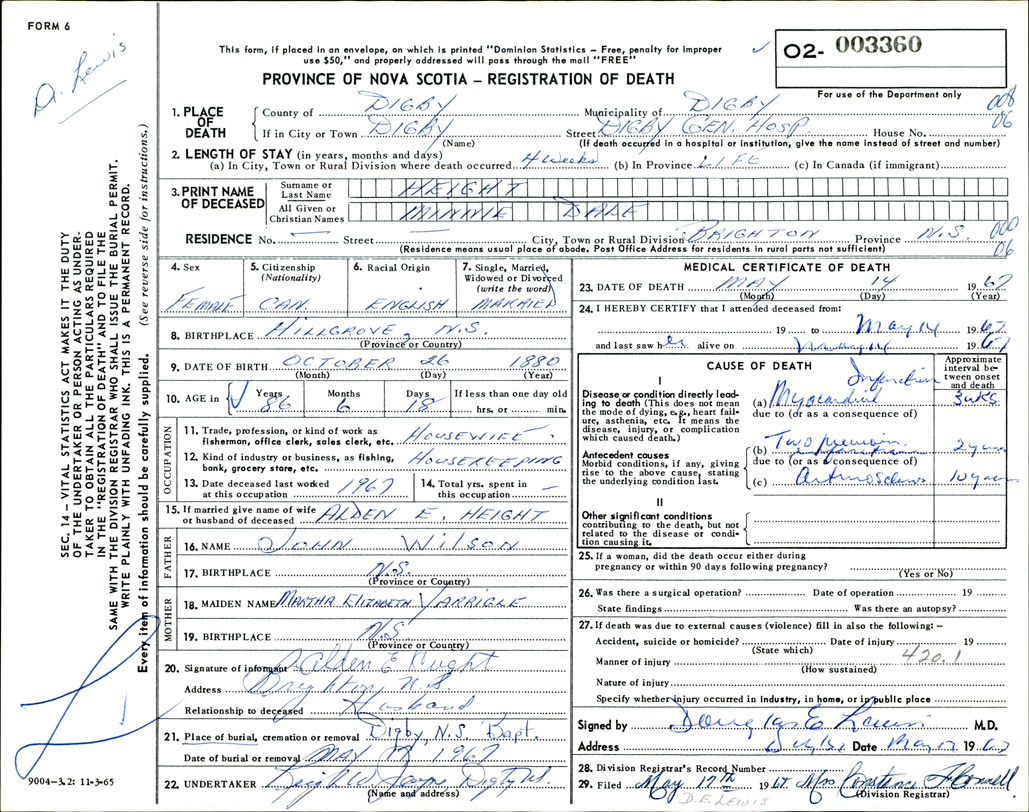 FORM 6
D. Lewis
This form, if placed in an envelope, on which is printed "Dominion Statistics – Free, penalty for improper
use $50," and properly addressed will pass through the mail "FREE"
PROVINCE OF NOVA SCOTIA – REGISTRATION OF DEATH
O2- 003360
For use of the Department only
SEC. 14 – VITAL STATISTICS ACT MAKES IT THE DUTY
OF THE UNDERTAKER OR PERSON ACTING AS UNDER-
TAKER TO OBTAIN ALL THE PARTICULARS REQUIRED
IN THE "REGISTRATION OF DEATH" AND TO FILE THE
SAME WITH THE DIVISION REGISTRAR WHO SHALL ISSUE THE BURIAL PERMIT.
WRITE PLAINLY WITH UNFADING INK. THIS IS A PERMANENT RECORD.
Every item of information should be carefully supplied. (See reverse side for instructions.)
1. PLACE OF DEATH
County of DIGBY Municipality of DIGBY 008
If in City or Town DIGBY Street DIGBY GEN. HOSP. House No. 06
(Name) (If death occurred in a hospital or institution, give the name instead of street and number)
2. LENGTH OF STAY (in years, months and days)
(a) In City, Town or Rural Division where death occurred 4 Weeks (b) In Province LIFE (c) In Canada (if immigrant)
3. PRINT NAME OF DECEASED
Surname or Last Name HEIGHT
All Given or Christian Names MINNIE DALE
RESIDENCE No. — Street City, Town or Rural Division BRIGHTON Province N.S. 000
(Residence means usual place of abode. Post Office Address for residents in rural parts not sufficient) 06
4. Sex FEMALE
5. Citizenship (Nationality) CAN.
6. Racial Origin ENGLISH
7. Single, Married, Widowed or Divorced (write the word) MARRIED
8. BIRTHPLACE HILLGROVE, N.S.
(Province or Country)
9. DATE OF BIRTH OCTOBER 26 1880
(Month) (Day) (Year)
10. AGE in Years 86 Months 6 Days 18 If less than one day old
hrs. or min.
OCCUPATION
11. Trade, profession, or kind of work as
fisherman, office clerk, sales clerk, etc. HOUSEWIFE
12. Kind of industry or business, as fishing,
bank, grocery store, etc. HOUSEKEEPING
13. Date deceased last worked
at this occupation 1967
14. Total yrs. spent in
this occupation —
15. If married give name of wife
or husband of deceased ALDEN E. HEIGHT
FATHER
16. NAME JOHN WILSON
17. BIRTHPLACE N.S.
(Province or Country)
MOTHER
18. MAIDEN NAME MARTHA ELIZABETH
19. BIRTHPLACE N.S.
(Province or Country)
20. Signature of informant Alden E
Address Brighton, N.S.
Relationship to deceased Husband
21. Place of burial, cremation or removal Digby, N.S. Bapt.
Date of burial or removal MAY 17 1967
22. UNDERTAKER
(Name and address)
9004–3.2: 11-3-65
MEDICAL CERTIFICATE OF DEATH
23. DATE OF DEATH MAY 14 1967
(Month) (Day) (Year)
24. I HEREBY CERTIFY that I attended deceased from:
19 to May 14 1967
and last saw her alive on May 14 1967
CAUSE OF DEATH
Approximate interval between onset and death
I
Disease or condition directly lead-
ing to death (This does not mean
the mode of dying, e.g., heart fail-
ure, asthenia, etc. It means the
disease, injury, or complication
which caused death.)
(a) Myocardial Infarction 3 wks
due to (or as a consequence of)
Antecedent causes
Morbid conditions, if any, giving
rise to the above cause, stating
the underlying condition last.
(b) Two previous 2 years
due to (or as a consequence of)
(c) 10 years
II
Other significant conditions
contributing to the death, but not
related to the disease or condi-
tion causing it.
25. If a woman, did the death occur either during
pregnancy or within 90 days following pregnancy?
(Yes or No)
26. Was there a surgical operation? Date of operation 19
State findings Was there an autopsy?
27. If death was due to external causes (violence) fill in also the following: –
Accident, suicide or homicide? Date of injury 19
(State which) 420.1
Manner of injury
(How sustained)
Nature of injury
Specify whether injury occurred in Industry, in home, or in public place
Signed by Douglas E Lewis M.D.
Address Digby Date May 17 1967
28. Division Registrar's Record Number
29. Filed May 17th 1967 Mrs Constance
(Division Registrar)
D.E. LEWIS